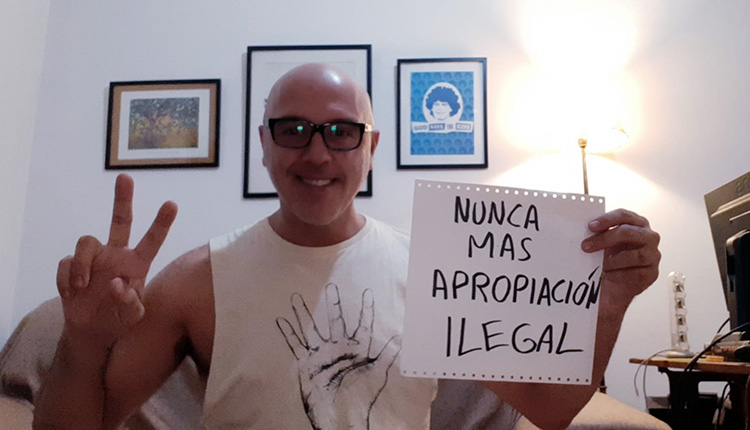 NUNCA
MAS
APROPIACIÓN
ILEGAL